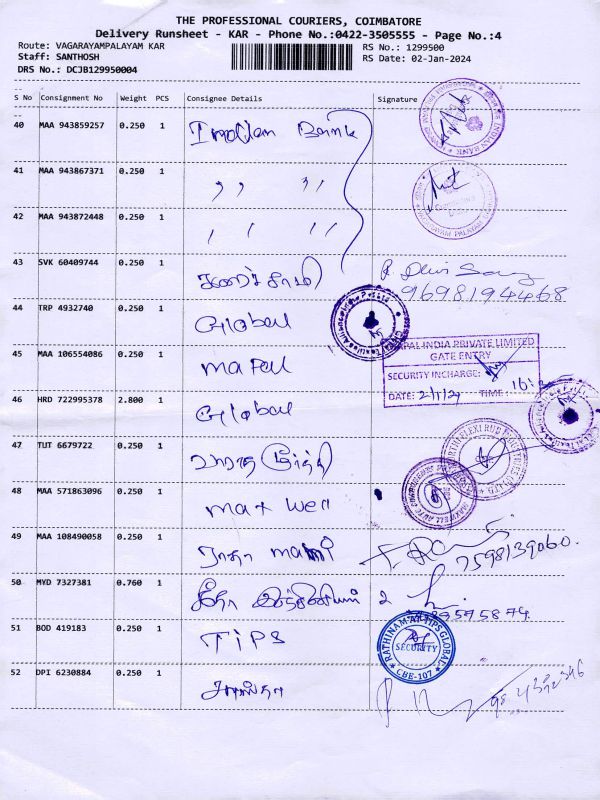 THE PROFESSIONAL COURIERS, COIMBATORE
Delivery Runsheet - KAR - Phone No.:0422-3505555 - Page No.:4
Route: VAGARAYAMPALAYAM KAR
RS No.: 1299500
Staff: SANTHOSH
RS Date: 02-Jan-2024
DRS No.: DCJB129950004
S No Consignment No Weight PCS Consignee Details Signature
40 MAA 943859257 0.250 1 Indian Bank
41 MAA 943867371 0.250 1 ,, ,,
42 MAA 943872448 0.250 1 ,, ,,
43 SVK 60409744 0.250 1
9698194468
44 TRP 4932740 0.250 1 Global
45 MAA 106554086 0.250 1
INDIA PRIVATE LIMITED
GATE ENTRY
SECURITY INCHARGE:
DATE: 2/1/24 TIME:
46 HRD 722995378 2.800 1 Global
47 TUT 6679722 0.250 1
48 MAA 571863096 0.250 1 Maxwell
49 MAA 108490058 0.250 1 ராதா
7598139060.
50 MYD 7327381 0.760 1 கீதா
51 BOD 419183 0.250 1 TIPS
RATHINAM TIPS GLOBAL
SECURITY
CBE-107
52 DPI 6230884 0.250 1